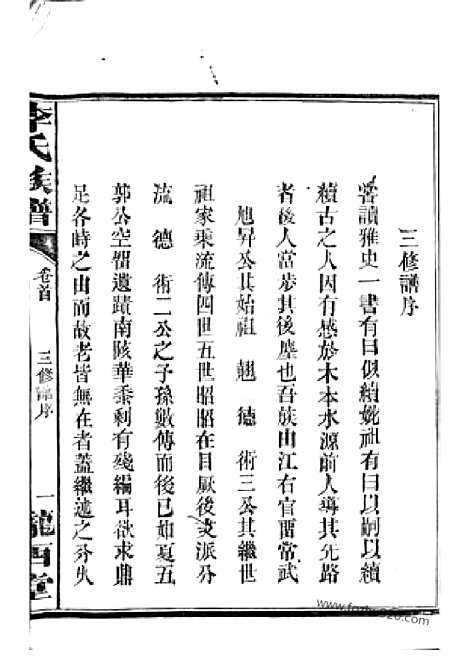 三修譜序
嘗讀雅史一書有曰似續妣祖有曰以嗣以續
續古之人因有感於木本水源前人導其先路
者後人當步其後塵也吾族由江右官畱當武
旭昇公其始祖 翹 德 術三公其繼世
祖家乘流傳四世五世昭昭在目厥後支派分
流 德 術二公之子孫數傳而後已如夏五
郭公空畱遺蹟南陔華黍剩有殘編耳欲求鼎
足各時之由而故老皆無在者蓋繼述之分失
李氏族譜
卷首
三修譜序
一
隴西堂